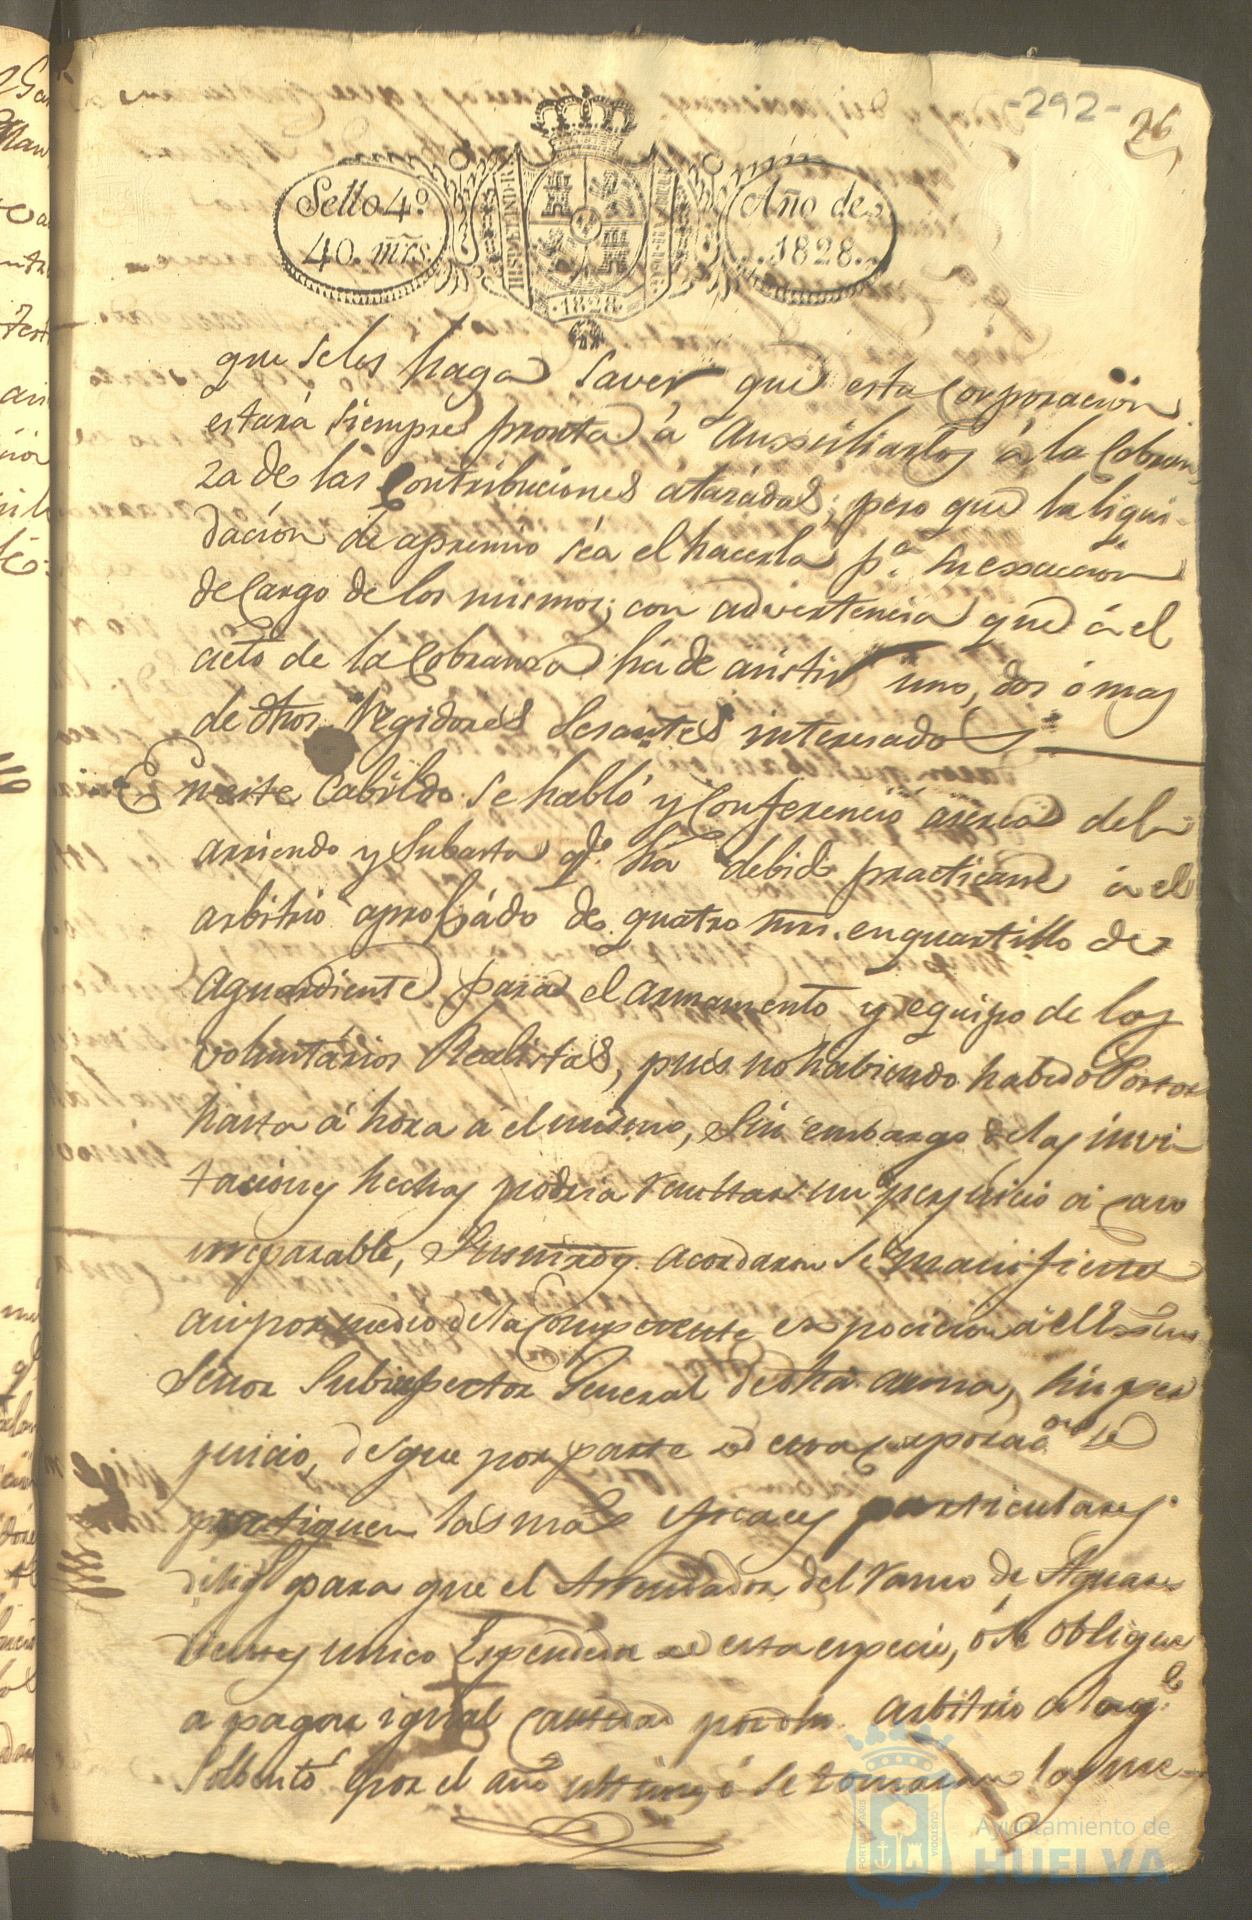 -292-
26
Sello 4º
40. mrs.
HISP. ET IND. R.
Año de
1828.
.1828.
que seles haga saver que esta Corporacion
estará siempre pronta á aussiliarlos á la Cobran,
za de las Contribuciones átrasadas; pero que la liqui-
dación de apremio séa el hacerla pª. su essaccion
de Cargo de los mismos; con advertencia que á el
acto de la Cobranza há de asistir uno, dos ó mas
de dhos. Regidores Sesantes interesados
En este Cabildo se habló y Conferenció acerca del
arriendo y Subasta qe. há debido practicarse á el
arbitrio aprobádo de quatro mrs. en quartillo de
Aguardiente para el armamento y equipo de los
Voluntários Realistas, pues no habiendo habido Postor
hasta á hora á el mismo, sin embargo de las invi
taciones hechas podria resultar un perjuicio
irreparable, Sus mrdes. acordaron se manifieste
asi por medio de la Competente exposicion á el Essmo
Señor Subinspector General de dha. arma, sin per
juicio, de que por parte de esta Corporaon. se
practiquen las mas eficaces particulares
dilig para que el Arrendador del ramo de Aguar
dientes unico Espendedor de esta especie, ó se obligue
a pagar igual Cantidad por dho. arbitrio a la qe.
Solbentó por el año ultimo, ó se tomaran las me-
Ayuntamiento de
HUELVA